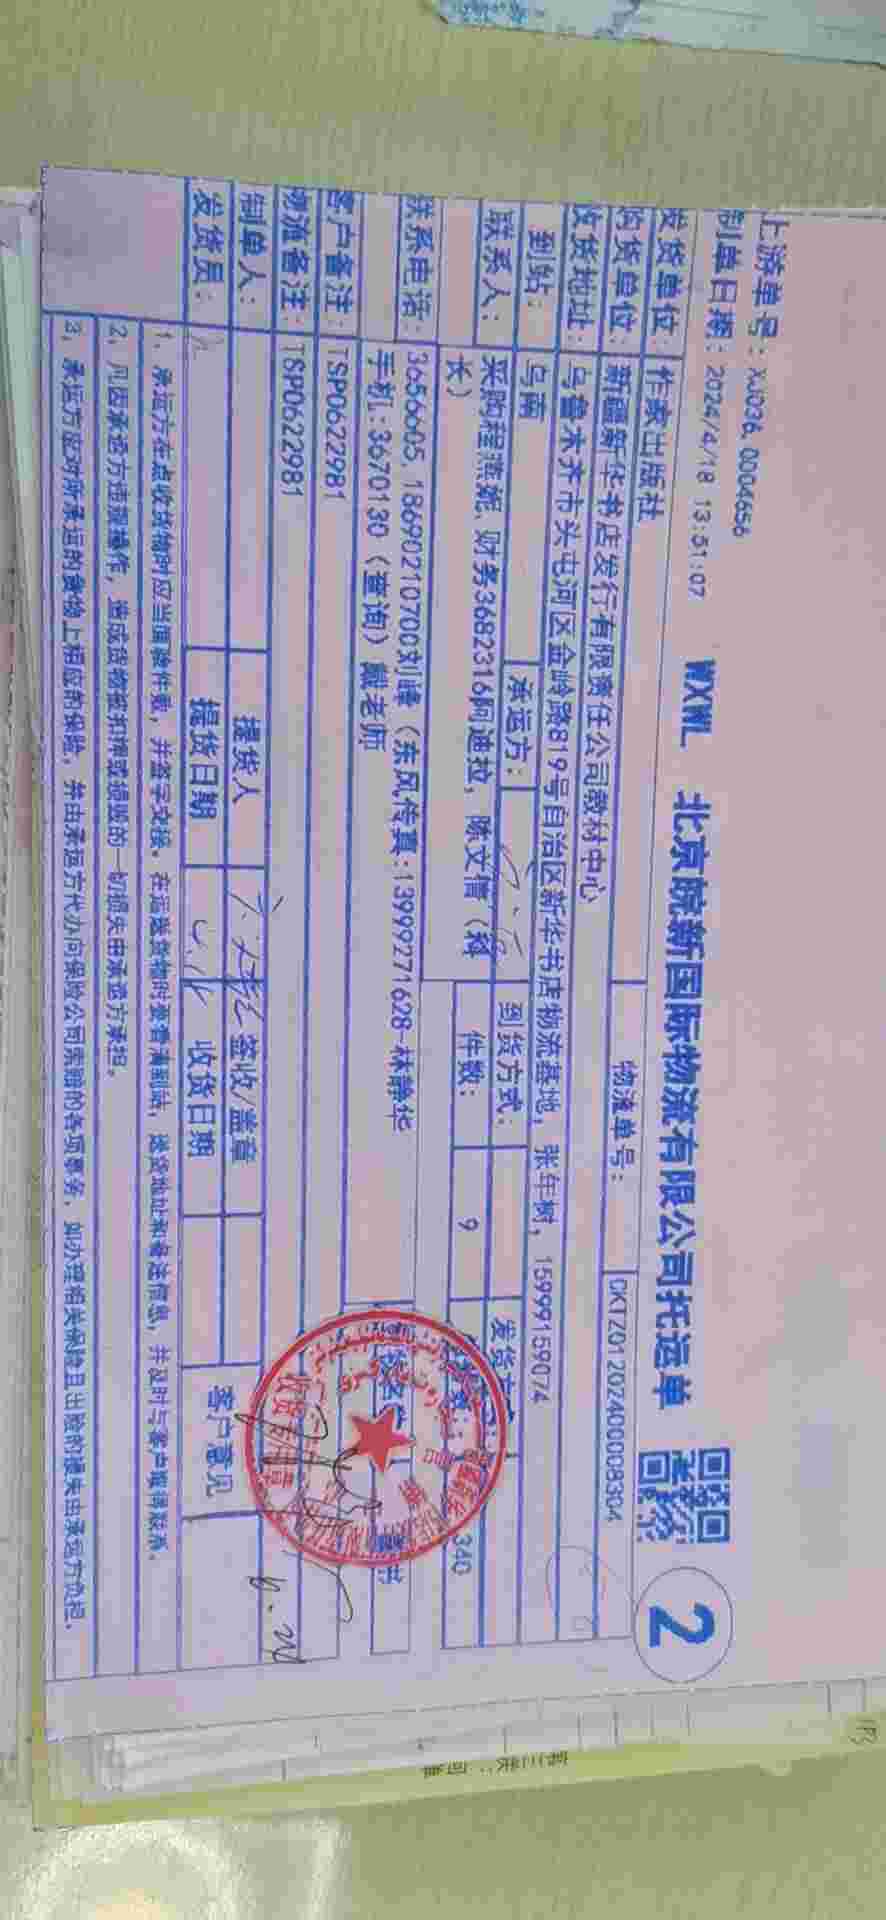 上游单号：XJ036, 0004656
制单日期：2024/4/18 13:51:07
WXWL 北京皖新国际物流有限公司托运单
2
发货单位：作家出版社
物流单号：CKTZ01202400008304
购货单位：新疆新华书店发行有限责任公司教材中心
收货地址：乌鲁木齐市头屯河区金岭路819号自治区新华书店物流基地，张年树，15999159074
到站：乌南
承运方：
到货方式：
联系人：采购程燕妮、财务3682316阿迪拉，陈文信（科长）
件数：9
340
联系电话：3656605, 18690210700刘峰（东风传真：13999271628-林静华
手机：3670130（查询）戴老师
客户备注：TSP0622981
物流备注：TSP0622981
制单人：
提货人
签收/盖章
发货员：
提货日期
收货日期
客户意见
1、承运方在点收货物时应当面验件数，并签字交接。在运送货物时要看清到站，送货地址和备注信息，并及时与客户取得联系。
2、凡因承运方违规操作，造成货物被扣押或损毁的一切损失由承运方承担。
3、承运方应对所承运的货物上相应的保险，并由承运方代办向保险公司索赔的各项事务，如办理相关保险且出险的损失由承运方负担。
收货专用章
第三联：回单